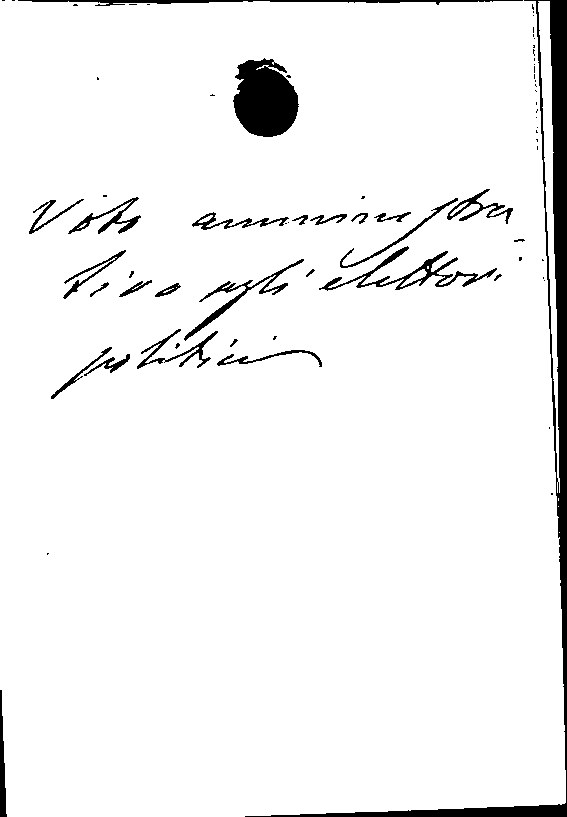 Voto amministra
tivo agli elettori
politici